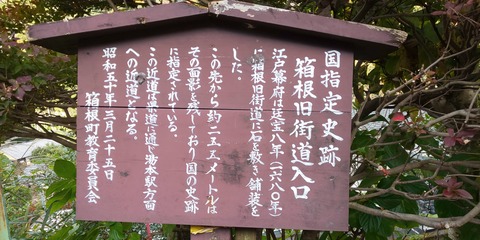 国指定史跡
箱根旧街道入口
江戸幕府は延宝八年(一六八〇年)
に箱根旧街道に石を敷き舗装を
した。
この先から約二五五メートルは
その面影を残しており国の史跡
に指定されている。
この近道は県道に通じ湯本駅方面
への近道となる。
昭和五十年三月二十五日
箱根町教育委員会